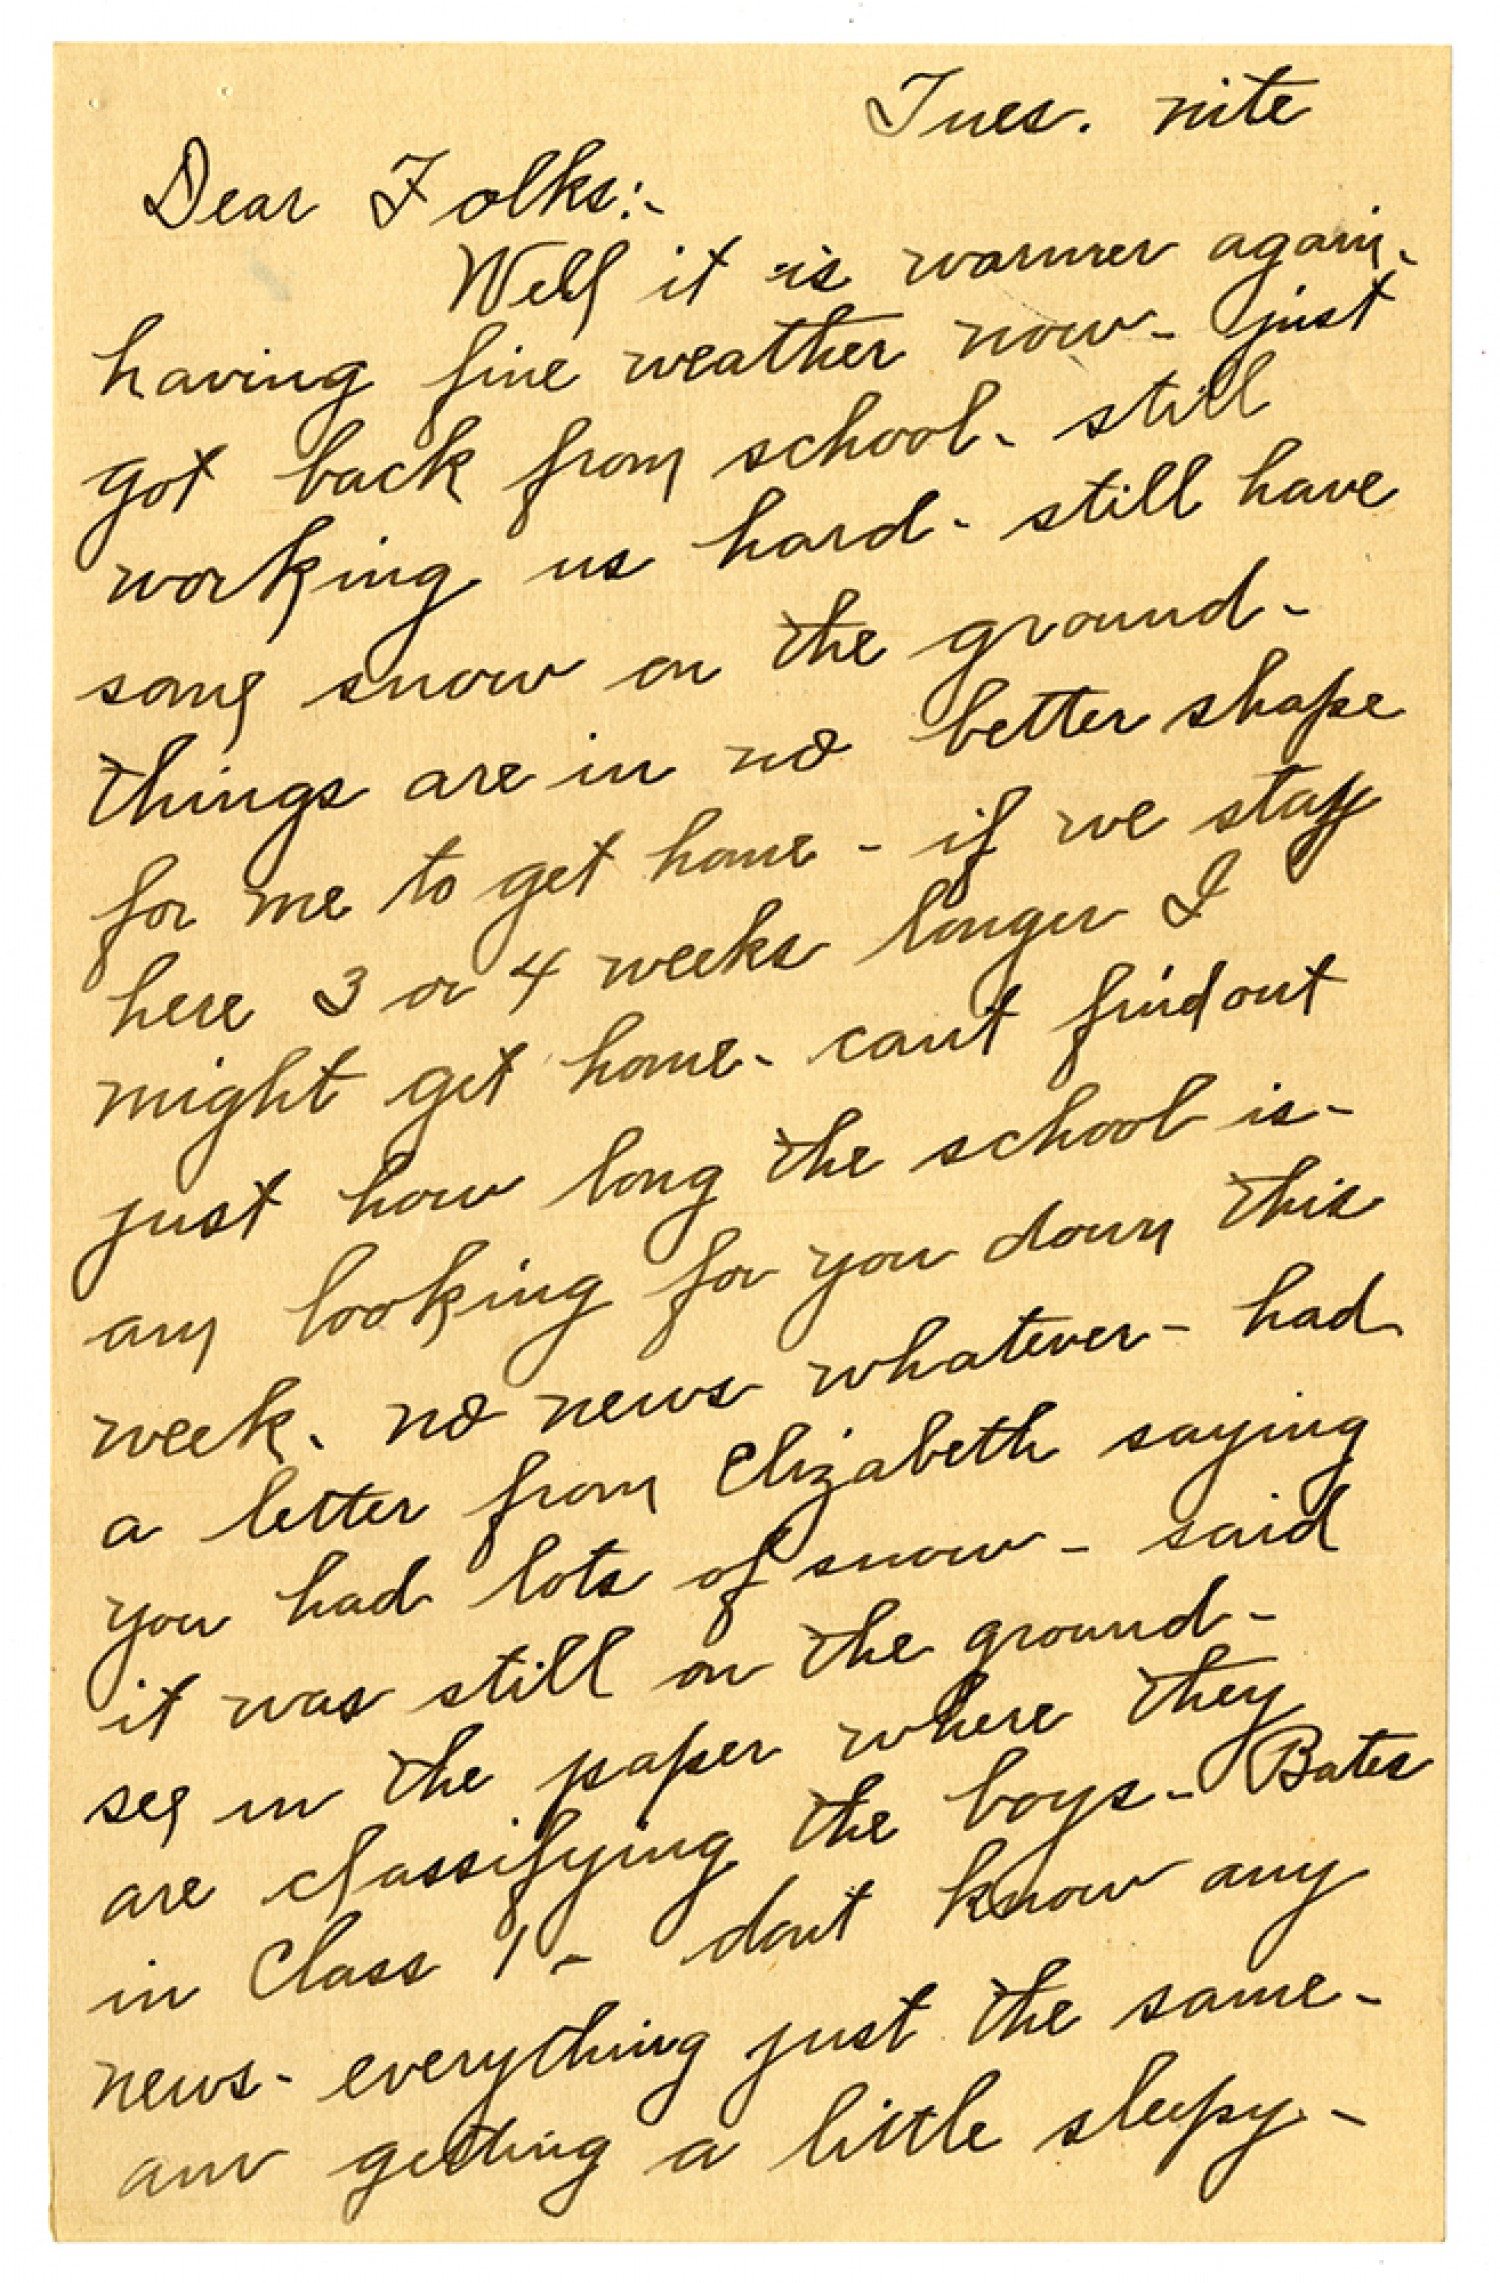 Tues. nite
Dear Folks:-
Well it is warmer again-
having fine weather now- just
got back from school- still
working us hard- still have
some snow on the ground-
things are in no better shape
for me to get home - if we stay
here 3 or 4 weeks longer I
might get home- cant find out
just how long the school is-
am looking for you down this
week. no news whatever- had
a letter from Elizabeth saying
you had lots of snow - said
it was still on the ground-
see in the paper where they
are classifying the boys- Bates
in Class 1 - dont know any
news- everything just the same-
am getting a little sleepy-